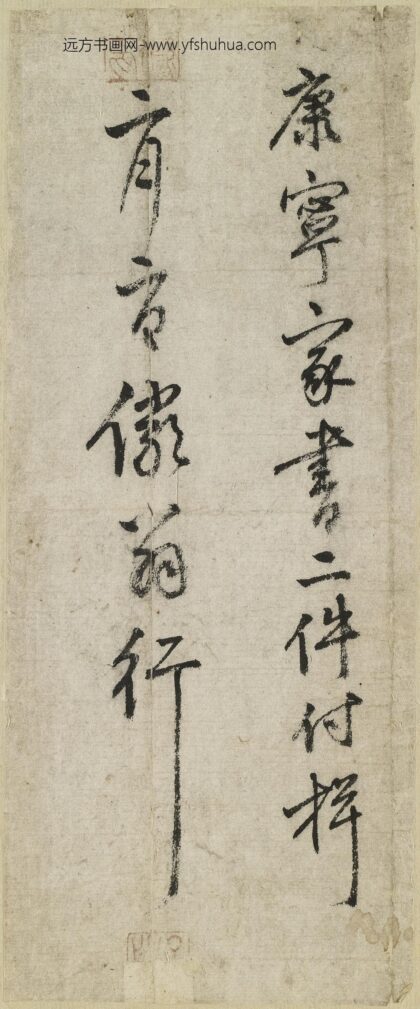 远方书画网-www.yfshuhua.com
康寧家書二件付
育翁行